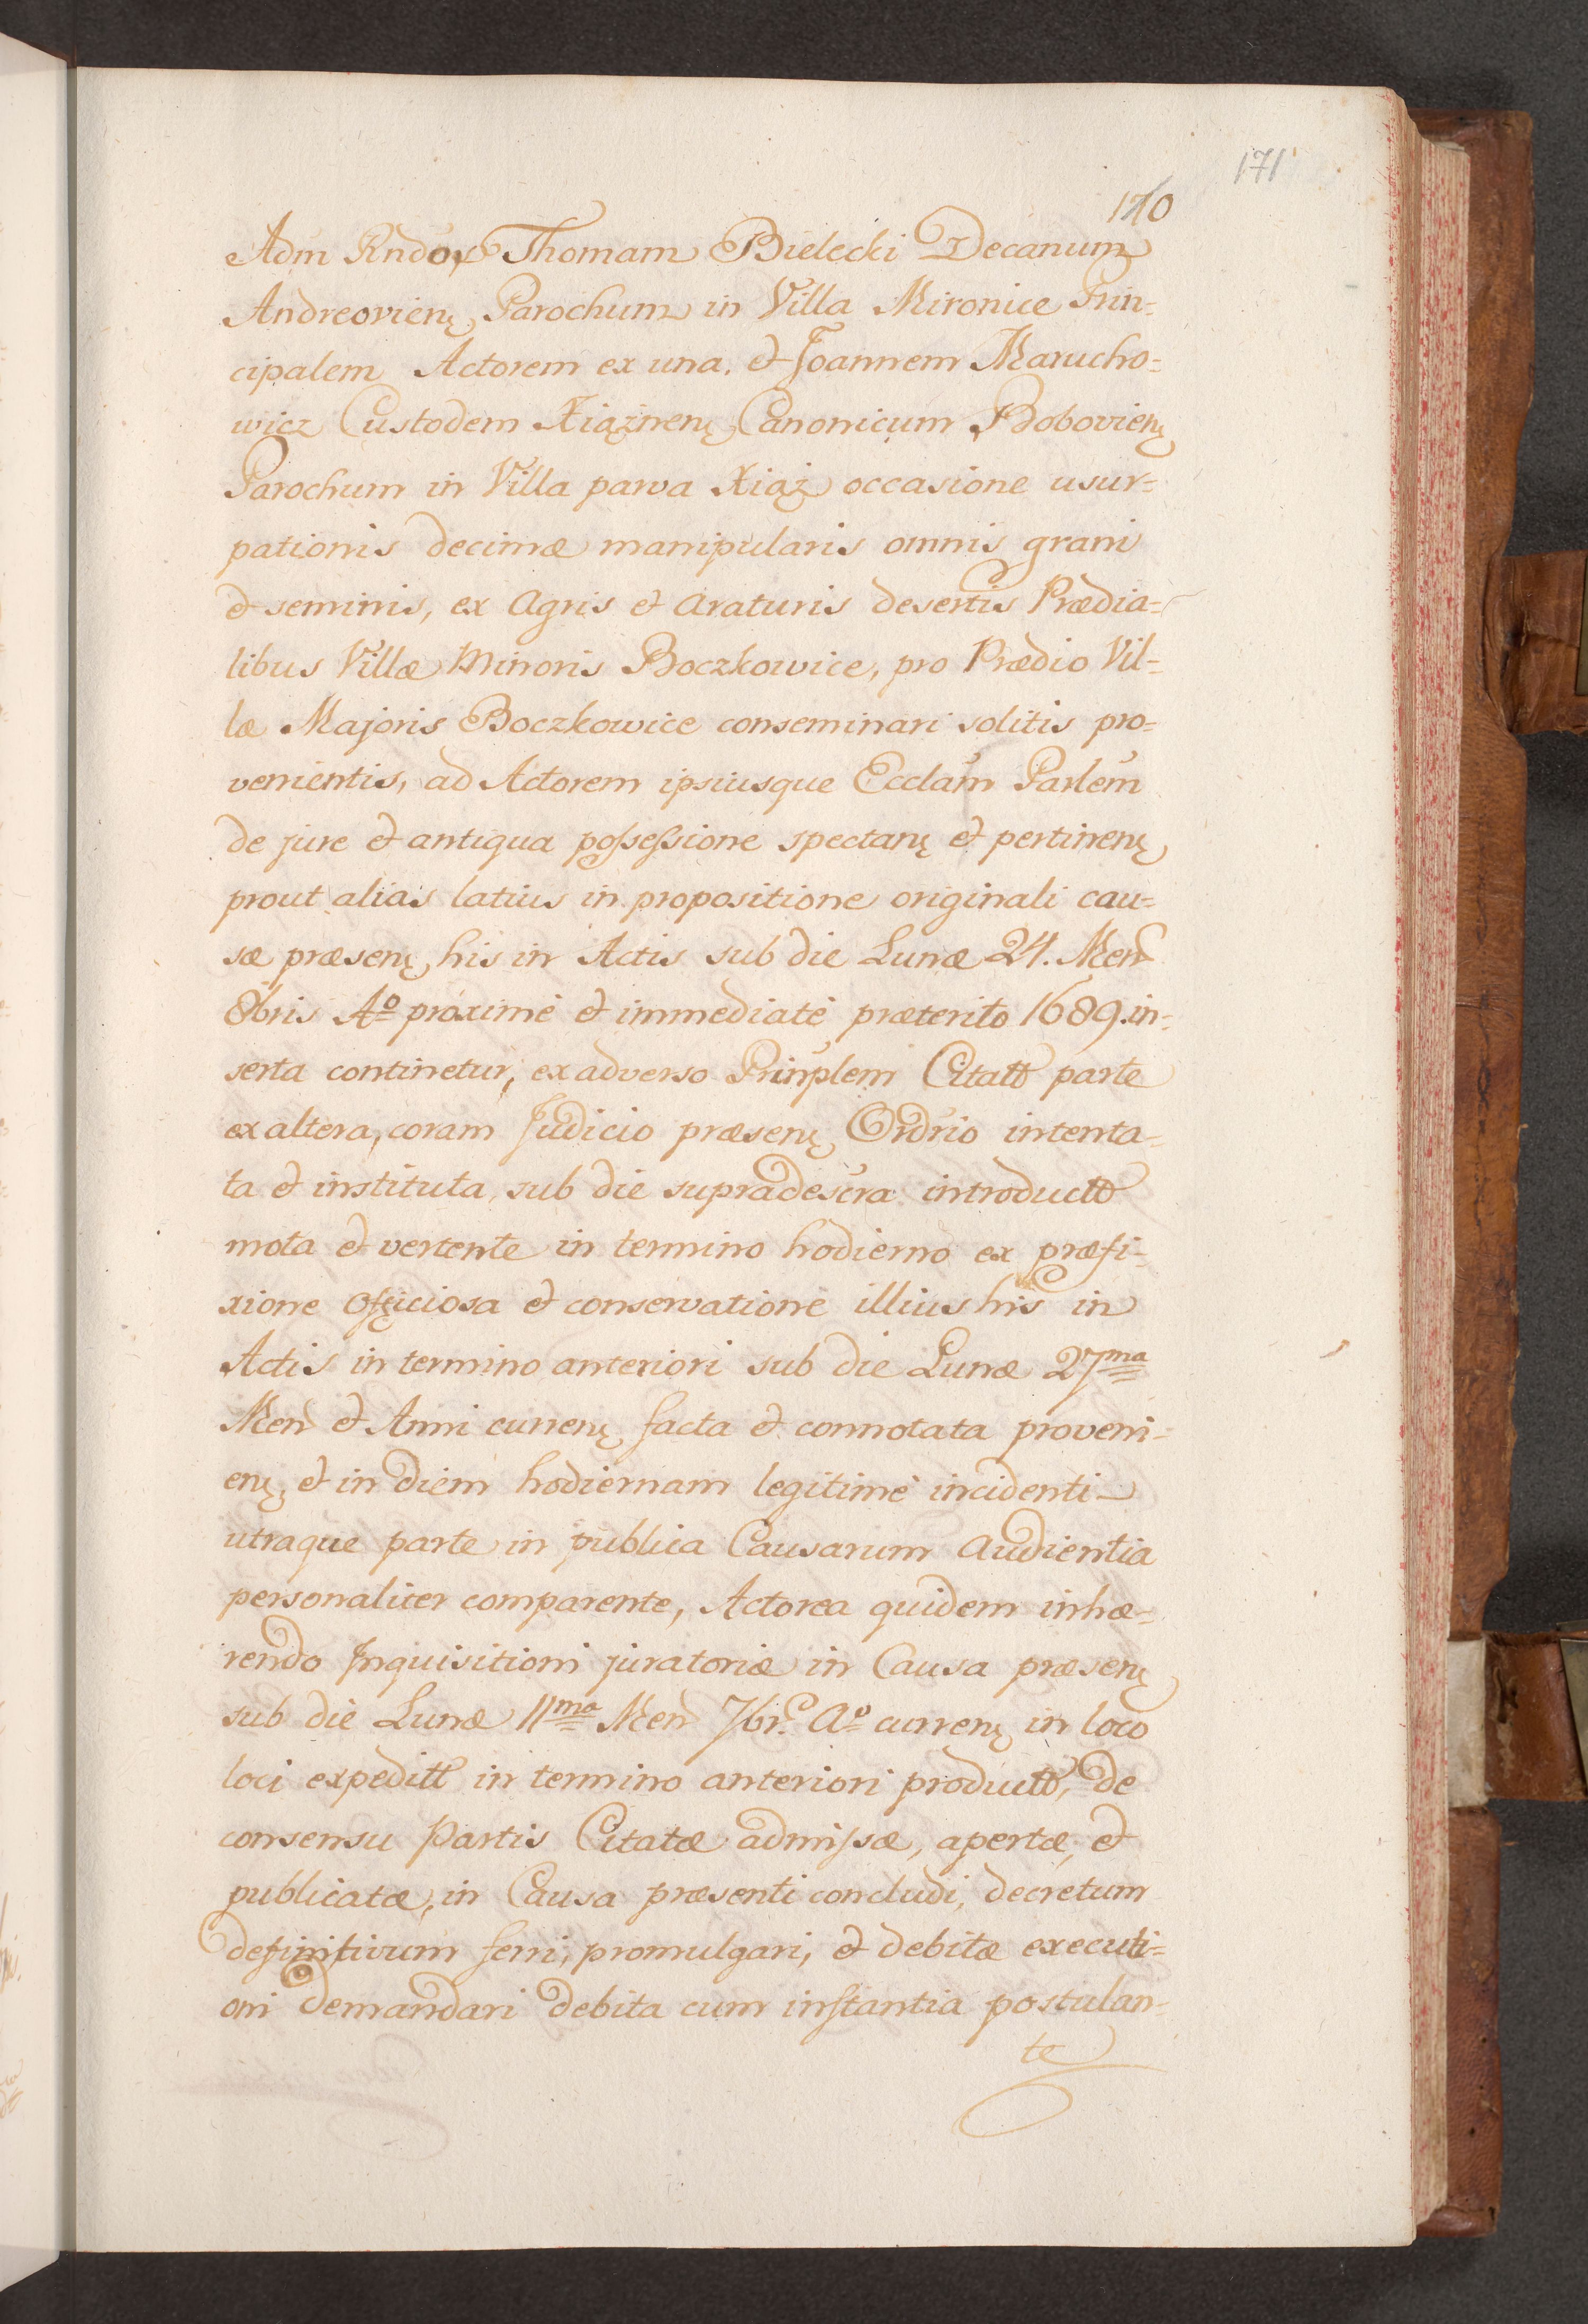 171
170
Adm Rndor Thomam Bielecki Decanum
Andreovienę Parochum in Villa Mironice Prin-
cipalem Actorem ex una, et Joannem Marucho-
wicz Custodem Xiąznenę Canonicum Bobovienę
Parochum in Villa parva Xiąż occasione usur-
pationis decimæ manipularis omnis grani
et seminis, ex Agris et Araturis desertis Prædia-
libus Villæ Minoris Boczkowice, pro Prædio Vil-
læ Majoris Boczkowice conseminari solitis pro-
venientis, ad Actorem ipsiusque Ecclam Parlem
de jure et antiqua possessione spectanę et pertinenę
prout alias latius in propositione originali cau-
sæ præsenę his in Actis sub die Lunæ 24. Men
8bris Aº proximè et immediatè præterito 1689. in-
serta continetur, ex adverso Prinplem Citatt parte
ex altera, coram Judicio præsenę Ordrio intenta-
ta et instituta, sub die supradescra introductt
mota et vertente in termino hodierno ex præfi-
xione officiosa et conservatione illius his in
Actis in termino anteriori sub die Lunæ 27ma
Men et Anni currenę facta et connotata proveni-
enę, et in diem hodiernam legitimè incidenti
utraque parte in publica Causarum Audientia
personaliter comparente, Actorea quidem inhæ-
rendo Inquisitioni juratoriæ in Causa præsenę
sub die Lunæ 11ma Men 7br. Aº currenę in loco
loci expeditt in termino anteriori productt, de
consensu Partis Citatæ admissæ, apertæ, et
publicatæ, in Causa præsenti concludi, decretum
definitivum ferri, promulgari, et debitæ executi-
oni demandari debita cum instantia postulan-
te